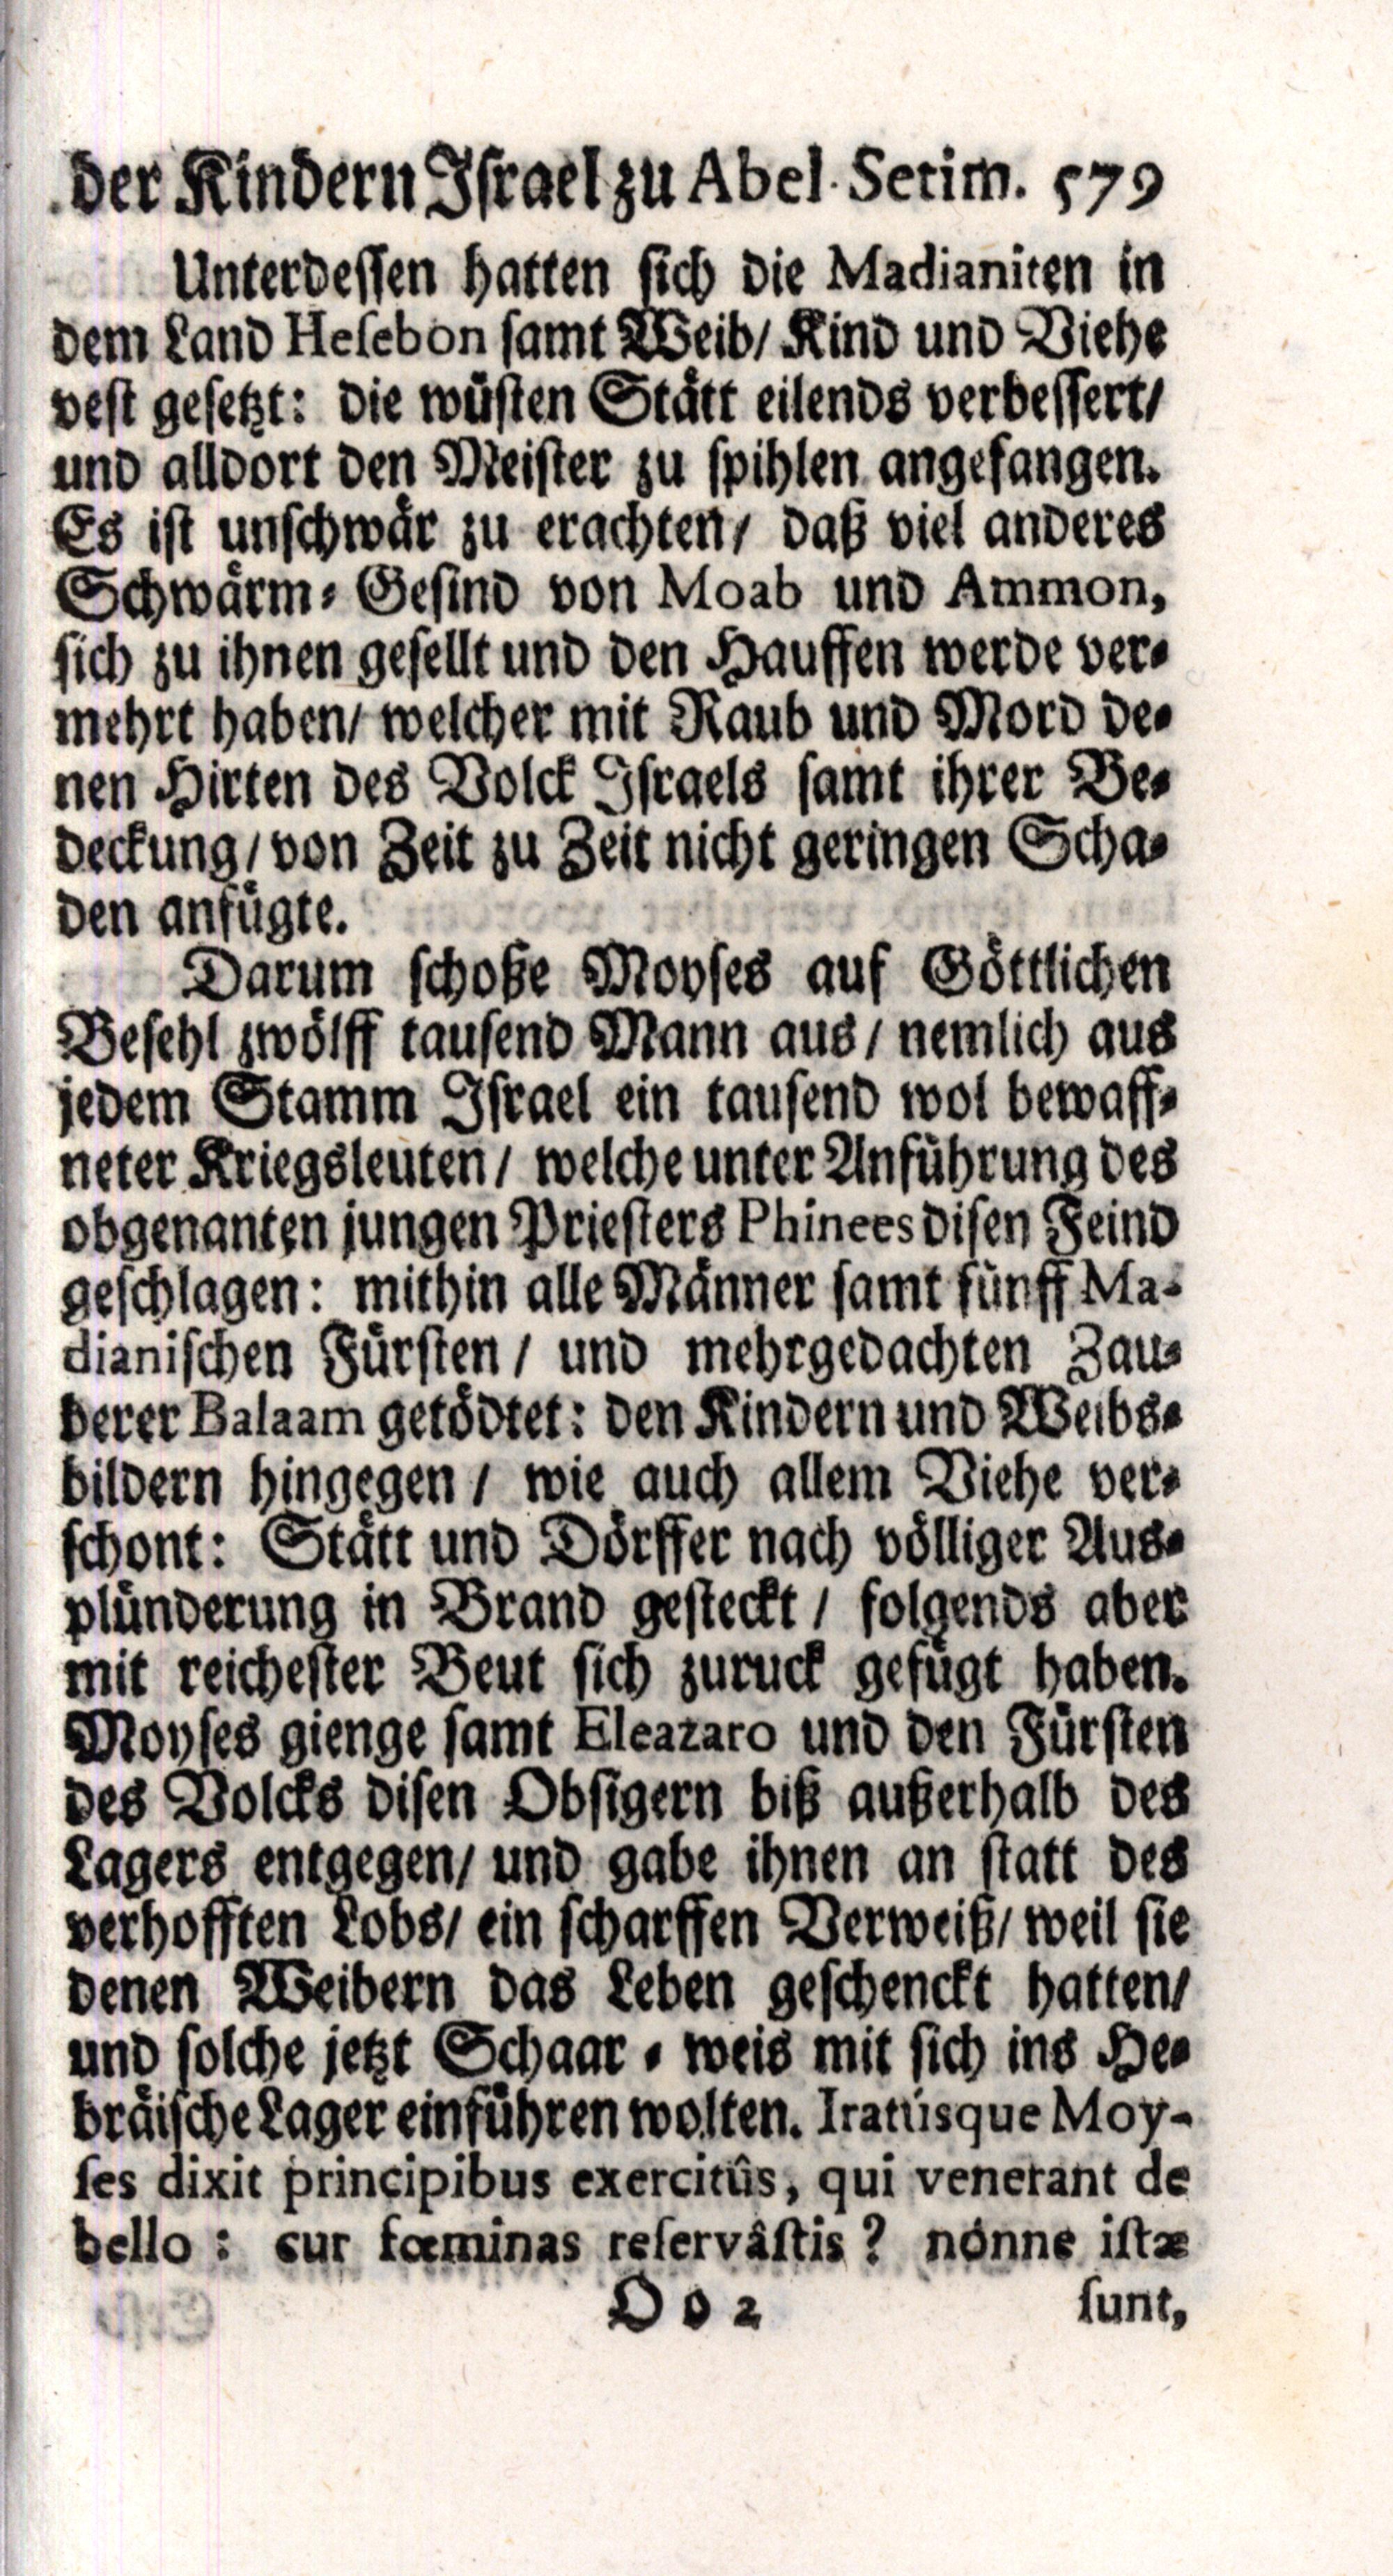 der Kindern Iſrael zu Abel Setim. 579
Unterdeſſen hatten ſich die Madianiten in
dem Land Heſebon ſamt Weib/ Kind und Viehe
veſt geſetzt: die wüſten Stätt eilends verbeſſert/
und alldort den Meiſter zu ſpihlen angefangen.
Es iſt unſchwär zu erachten/ daß viel anderes
Schwärm⸗Geſind von Moab und Ammon,
ſich zu ihnen geſellt und den Hauffen werde ver⸗
mehrt haben/ welcher mit Raub und Mord de⸗
nen Hirten des Volck Iſraels ſamt ihrer Be⸗
deckung/ von Zeit zu Zeit nicht geringen Scha⸗
den anfügte.
Darum ſchoße Moyſes auf Göttlichen
Befehl zwölff tauſend Mann aus/ nemlich aus
jedem Stamm Iſrael ein tauſend wol bewaff⸗
neter Kriegsleuten/ welche unter Anführung des
obgenanten jungen Prieſters Phinees diſen Feind
geſchlagen: mithin alle Männer ſamt fünff Ma-
dianiſchen Fürſten/ und mehrgedachten Zau⸗
berer Balaam getödtet: den Kindern und Weibs⸗
bildern hingegen/ wie auch allem Viehe ver⸗
ſchont: Stätt und Dörffer nach völliger Aus⸗
plünderung in Brand geſteckt/ folgends aber
mit reicheſter Beut ſich zuruck gefügt haben.
Moyſes gienge ſamt Eleazaro und den Fürſten
des Volcks diſen Obſigern biß außerhalb des
Lagers entgegen/ und gabe ihnen an ſtatt des
verhofften Lobs/ ein ſcharffen Verweiß/ weil ſie
denen Weibern das Leben geſchenckt hatten/
und ſolche jetzt Schaar⸗weis mit ſich ins He⸗
bräiſche Lager einführen wolten. Iratúsque Moy-
ſes dixit principibus exercitûs, qui venerant de
bello: cur fœminas reſervâſtis? nónne iſtæ
O o 2 ſunt,